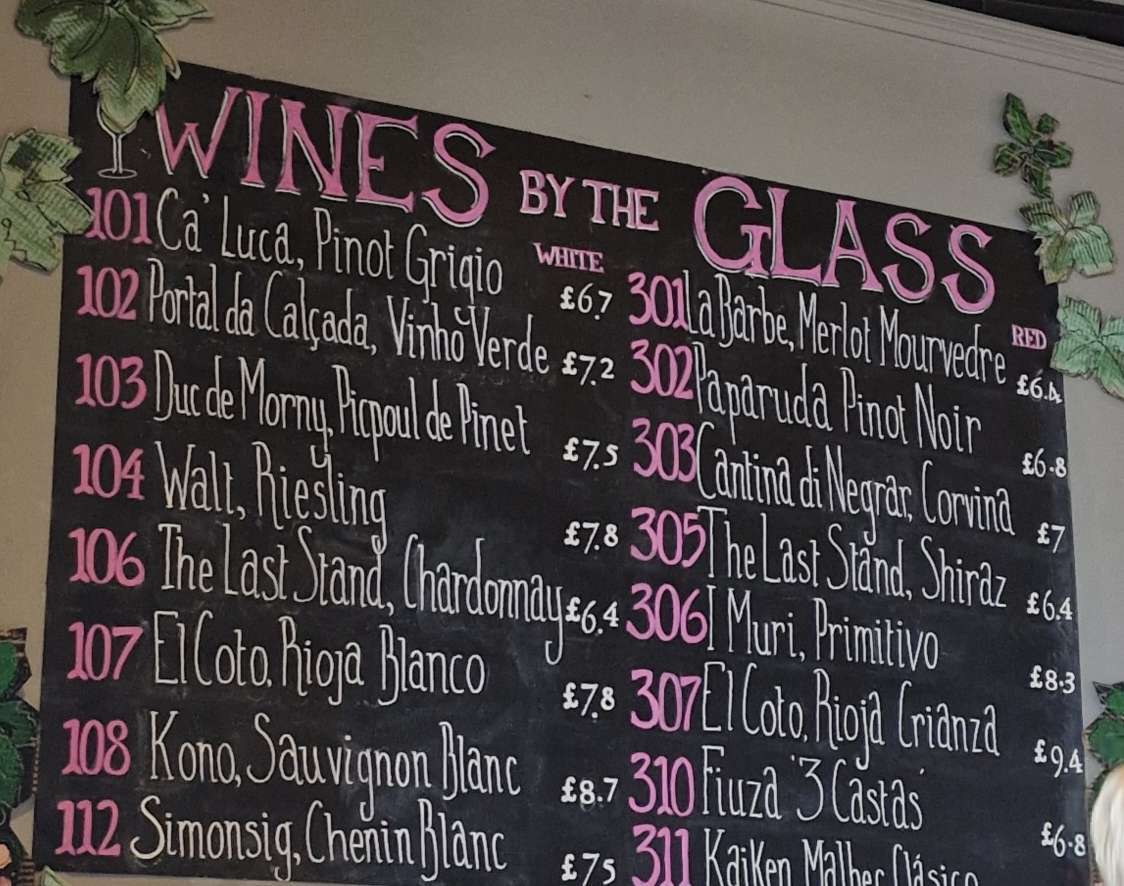 WINES BY THE GLASS
WHITE
101 Ca' Luca, Pinot Grigio £6.7
102 Portal da Calçada, Vinho Verde £7.2
103 Duc de Morny, Picpoul de Pinet £7.5
104 Walt, Riesling £7.8
106 The Last Stand, Chardonnay £6.4
107 El Coto, Rioja Blanco £7.8
108 Kono, Sauvignon Blanc £8.7
112 Simonsig, Chenin Blanc £7.5
RED
301 La Barbe, Merlot Mourvedre £6.4
302 Paparuda Pinot Noir £6.8
303 Cantina di Negrar, Corvina £7
305 The Last Stand, Shiraz £6.4
306 I Muri, Primitivo £8.3
307 El Coto, Rioja Crianza £9.4
310 Fiuza '3 Castas' £6.8
311 Kaiken Malbec Clásico